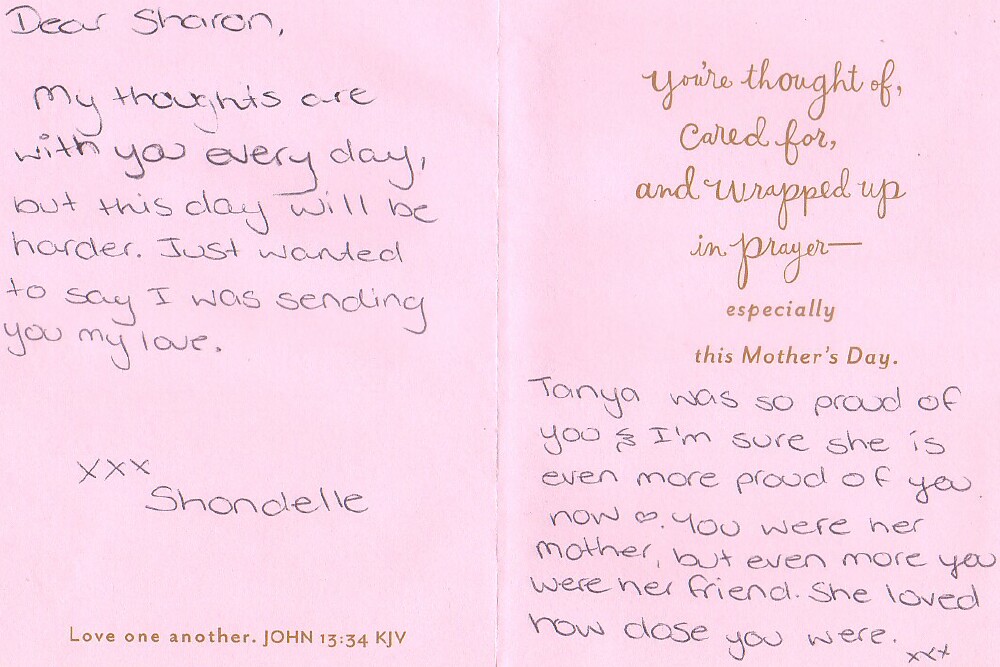 Dear Sharon,
My thoughts are
with you every day,
but this day will be
harder. Just wanted
to say I was sending
you my love.
xxx
Shondelle
Love one another. JOHN 13:34 KJV
You're thought of,
cared for,
and wrapped up
in prayer—
especially
this Mother's Day.
Tanya was so proud of
you & I'm sure she is
even more proud of you
now ♡. You were her
mother, but even more you
were her friend. She loved
how close you were.
xxx